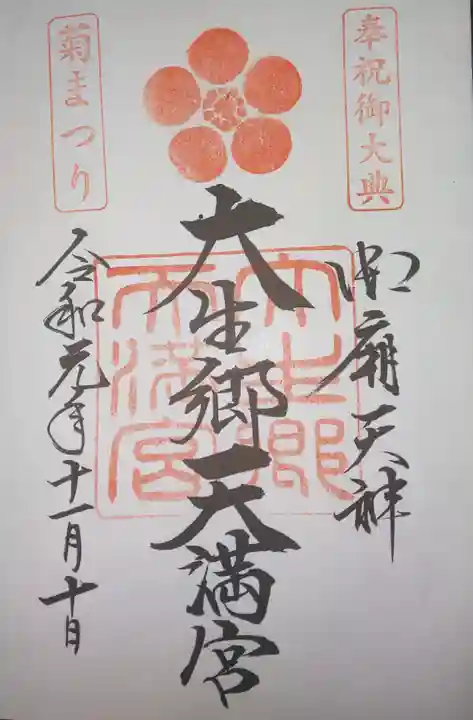 奉祝御大典
御廟天神
大生郷天満宮
大生郷天満宮
菊まつり
令和元年十一月十日